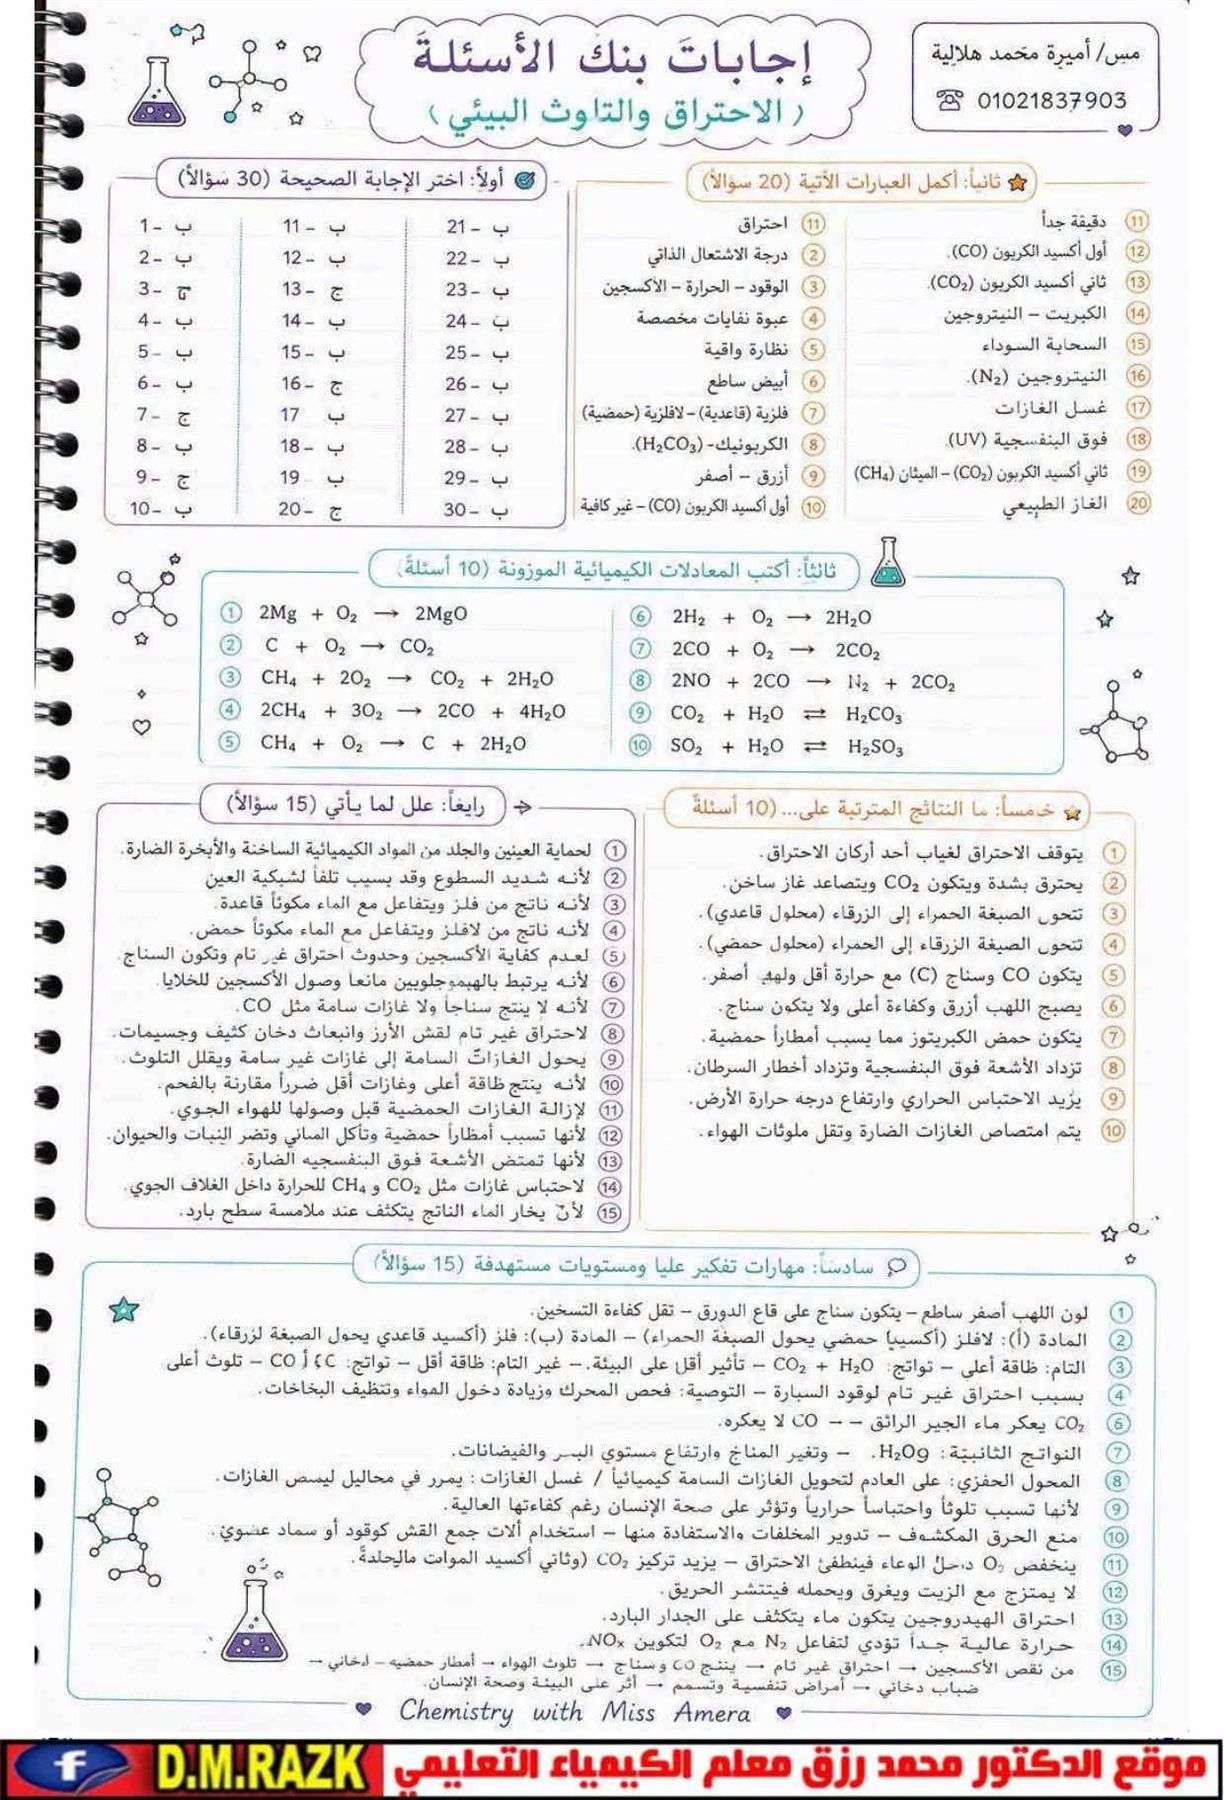 إجابات بنك الأسئلة
(الاحتراق والتلوث البيئي)
مس/ أميرة محمد هلالية
01021837903
أولاً: اختر الإجابة الصحيحة (30 سؤالاً)
1- ب
2- ب
3- ج
4- ب
5- ب
6- ب
7- ج
8- ب
9- ج
10- ب
11- ب
12- ب
13- ج
14- ب
15- ب
16- ج
17 ب
18- ب
19 ب
20- ج
21- ب
22- ب
23- ب
24- ب
25- ب
26- ب
27- ب
28- ب
29- ب
30- ب
ثانياً: أكمل العبارات الآتية (20 سؤالاً)
11 احتراق
2 درجة الاشتعال الذاتي
3 الوقود – الحرارة – الأكسجين
4 عبوة نفايات مخصصة
5 نظارة واقية
6 أبيض ساطع
7 فلزية (قاعدية) – لافلزية (حمضية)
8 الكربونيك- (H₂CO₃).
9 أزرق – أصفر
10 أول أكسيد الكربون (CO) – غير كافية
11 دقيقة جداً
12 أول أكسيد الكربون (CO).
13 ثاني أكسيد الكربون (CO₂).
14 الكبريت – النيتروجين
15 السحابة السوداء
16 النيتروجين (N₂).
17 غسل الغازات
18 فوق البنفسجية (UV)
19 ثاني أكسيد الكربون (CO₂) – الميثان (CH₄)
20 الغاز الطبيعي
ثالثاً: أكتب المعادلات الكيميائية الموزونة (10 أسئلة)
1 2Mg + O₂ → 2MgO
2 C + O₂ → CO₂
3 CH₄ + 2O₂ → CO₂ + 2H₂O
4 2CH₄ + 3O₂ → 2CO + 4H₂O
5 CH₄ + O₂ → C + 2H₂O
6 2H₂ + O₂ → 2H₂O
7 2CO + O₂ → 2CO₂
8 2NO + 2CO → N₂ + 2CO₂
9 CO₂ + H₂O ⇌ H₂CO₃
10 SO₂ + H₂O ⇌ H₂SO₃
رابعاً: علل لما يأتي (15 سؤالاً)
1 لحماية العينين والجلد من المواد الكيميائية الساخنة والأبخرة الضارة.
2 لأنه شديد السطوع وقد يسبب تلفاً لشبكية العين
3 لأنه ناتج من فلز ويتفاعل مع الماء مكوناً قاعدة.
4 لأنه ناتج من لافلز ويتفاعل مع الماء مكوناً حمض.
5 لعدم كفاية الأكسجين وحدوث احتراق غير تام وتكون السناج.
6 لأنه يرتبط بالهيموجلوبين مانعاً وصول الأكسجين للخلايا.
7 لأنه لا ينتج سناجاً ولا غازات سامة مثل CO.
8 لاحتراق غير تام لقش الأرز وانبعاث دخان كثيف وجسيمات.
9 يحول الغازات السامة إلى غازات غير سامة ويقلل التلوث.
10 لأنه ينتج طاقة أعلى وغازات أقل ضرراً مقارنة بالفحم.
11 لإزالة الغازات الحمضية قبل وصولها للهواء الجوي.
12 لأنها تسبب أمطاراً حمضية وتآكل المباني وتضر النبات والحيوان.
13 لأنها تمتص الأشعة فوق البنفسجيه الضارة.
14 لاحتباس غازات مثل CO₂ و CH₄ للحرارة داخل الغلاف الجوي.
15 لأن بخار الماء الناتج يتكثف عند ملامسة سطح بارد.
خامساً: ما النتائج المترتبة على... (10 أسئلة
1 يتوقف الاحتراق لغياب أحد أركان الاحتراق.
2 يحترق بشدة ويتكون CO₂ ويتصاعد غاز ساخن.
3 تتحول الصبغة الحمراء إلى الزرقاء (محلول قاعدي).
4 تتحول الصبغة الزرقاء إلى الحمراء (محلول حمضي).
5 يتكون CO وسناج (C) مع حرارة أقل ولهب أصفر.
6 يصبح اللهب أزرق وكفاءة أعلى ولا يتكون سناج.
7 يتكون حمض الكبريتوز مما يسبب أمطاراً حمضية.
8 تزداد الأشعة فوق البنفسجية وتزداد أخطار السرطان.
9 يزيد الاحتباس الحراري وارتفاع درجه حرارة الأرض.
10 يتم امتصاص الغازات الضارة وتقل ملوثات الهواء.
سادساً: مهارات تفكير عليا ومستويات مستهدفة (15 سؤالاً)
1 لون اللهب أصفر ساطع – يتكون سناج على قاع الدورق – تقل كفاءة التسخين.
2 المادة (أ): لافلز (أكسيد حمضي يحول الصبغة الحمراء) – المادة (ب): فلز (أكسيد قاعدي يحول الصبغة لزرقاء).
3 التام: طاقة أعلى – نواتج: CO₂ + H₂O – تأثير أقل على البيئة. – غير التام: طاقة أقل – نواتج: CO – تلوث أعلى
4 بسبب احتراق غير تام لوقود السيارة – التوصية: فحص المحرك وزيادة دخول الهواء وتنظيف البخاخات.
6 CO₂ يعكر ماء الجير الرائق – – CO لا يعكره.
7 النواتج: H₂O – وتغير المناخ وارتفاع مستوي البحر والفيضانات.
8 المحول الحفزي: على العادم لتحويل الغازات السامة كيميائياً / غسل الغازات: يمرر في محاليل الغازات.
9 لأنها تسبب تلوثاً واحتباساً حرارياً وتؤثر على صحة الإنسان رغم كفاءتها العالية.
10 منع الحرق المكشوف – تدوير المخلفات والاستفادة منها – استخدام ألات جمع القش كوقود أو سماد عضوي.
11 ينخفض O₂ داخل الوعاء فينطفئ الاحتراق – يزيد تركيز CO₂ (وثاني أكسيد
12 لا يمتزج مع الزيت ويغرق ويحمله فيتتشر الحريق.
13 احتراق الهيدروجين يتكون ماء يتكثف على الجدار البارد.
14 حرارة عالية جداً تؤدي لتفاعل N₂ مع O₂ لتكوين NOₓ.
15 من نقص الأكسجين → احتراق غير تام → ينتج CO وسناج → تلوث الهواء → أمطار حمضيه –
ضباب دخاني → أمراض تنفسية وتسمم → أثر على البيئة وصحة الإنسان.
Chemistry with Miss Amera
موقع الدكتور محمد رزق معلم الكيمياء التعليمي D.M.RAZK f